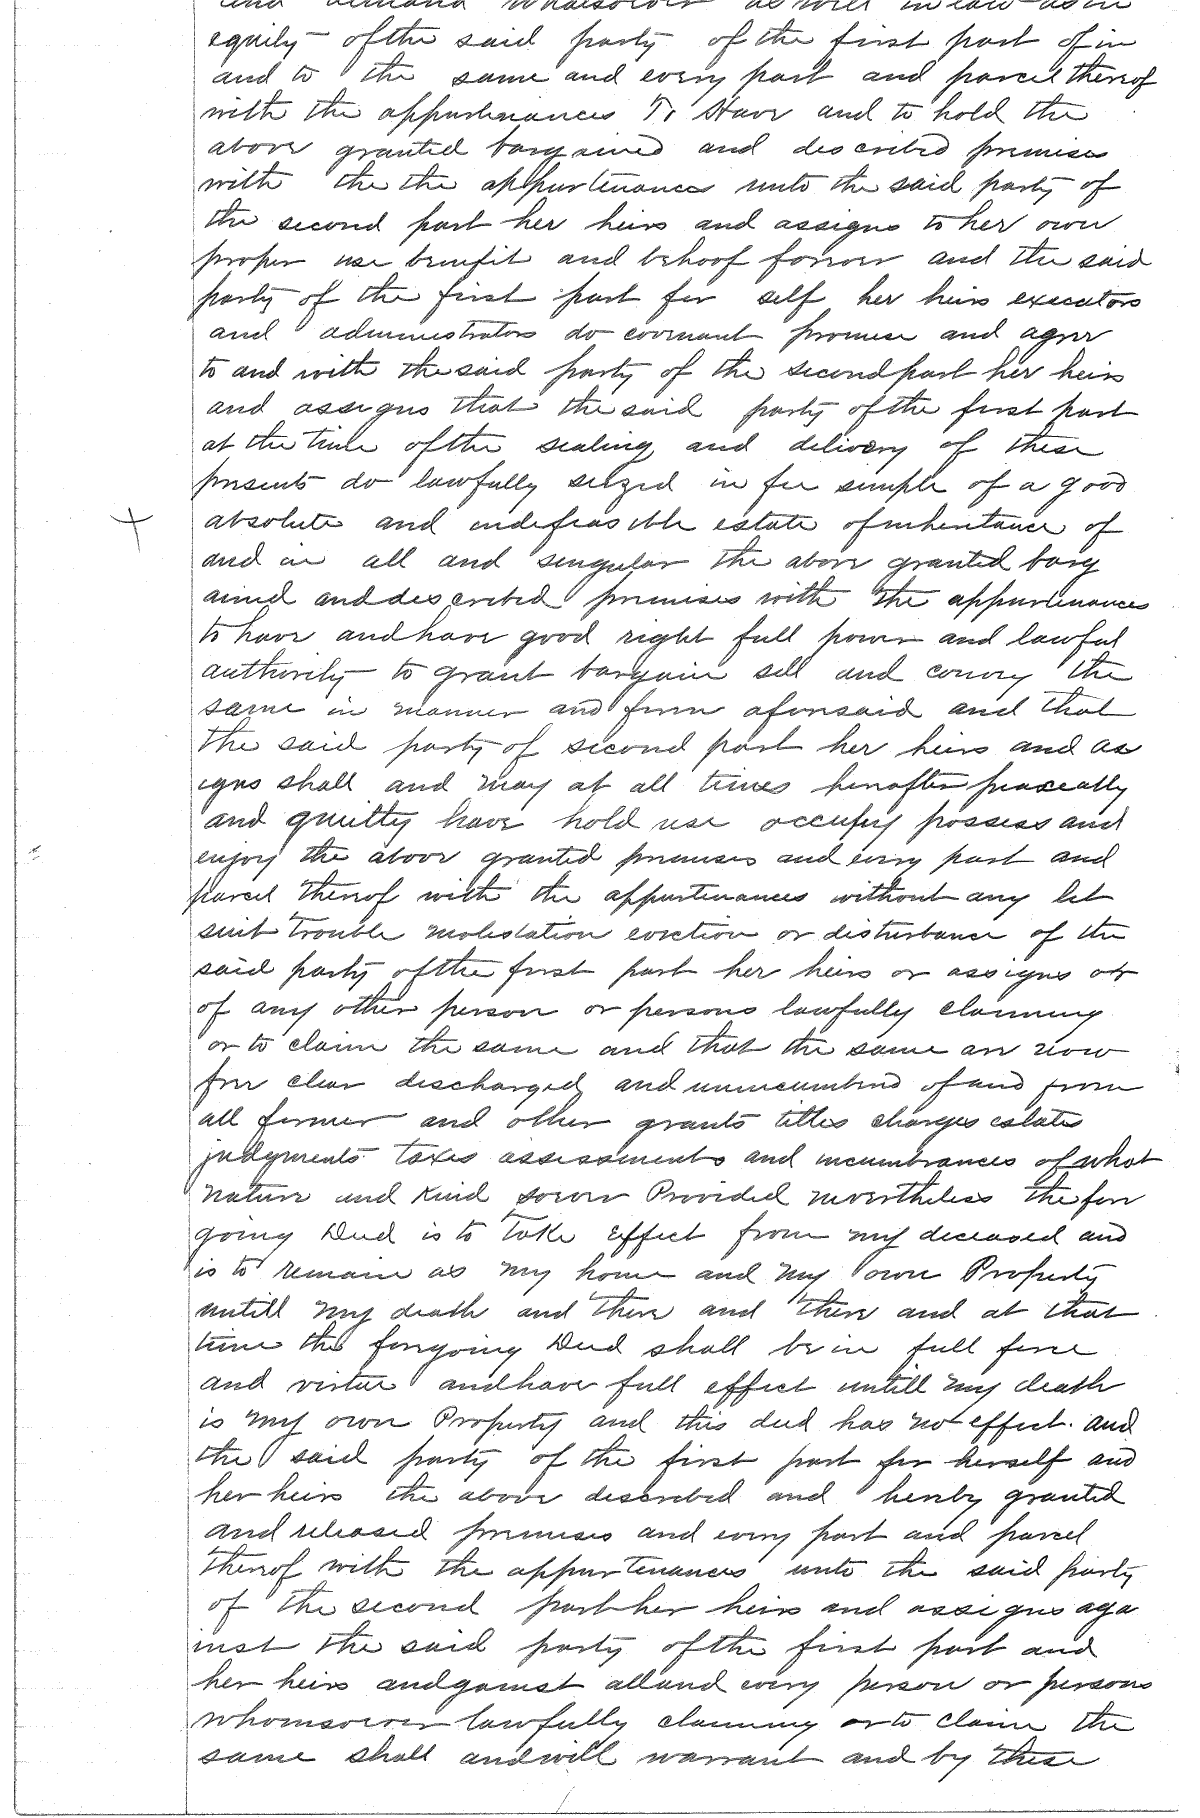 and demand whatsoever as well in law as in
equity of the said party of the first part of in
and to the same and every part and parcel thereof
with the appurtenances To Have and to hold the
above granted bargained and described premises
with the the appurtenances unto the said party of
the second part her heirs and assigns to her own
proper use benefit and behoof forever and the said
party of the first part for self her heirs executors
and administrators do covenant promise and agree
to and with the said party of the second part her heirs
and assigns that the said party of the first part
at the time of the sealing and delivery of these
presents do lawfully seized in fee simple of a good
absolute and indefeasible estate of inheritance of
and in all and singular the above granted barg
ained and described premises with the appurtenances
to have and have good right full power and lawful
authority to grant bargain sell and convey the
same in manner and form aforesaid and that
the said party of second part her heirs and as
igns shall and may at all times hereafter peaceally
and quietty have hold use occupy possess and
enjoy the above granted premises and every part and
parcel thereof with the appurtenances without any let
suit trouble molestation eviction or disturbance of the
said party of the first part her heirs or assigns or
of any other person or persons lawfully claiming
or to claim the same and that the same are now
free clear discharged and unincumbred of and from
all former and other grants titles charges estates
judgments taxes assessments and incumbrances of what
nature and kind soever Provided nevertheless the fore
going Deed is to take effect from my deceased and
is to remain as my home and my own Property
untill my death and there and there and at that
time the foregoing Deed shall be in full force
and virtue and have full effect untill my death
is my own Property and this deed has not effect. and
the said party of the first part for herself and
her heirs the above described and hereby granted
and released premises and every part and parcel
thereof with the appurtenances unto the said party
of the second part her heirs and assigns aga
inst the said party of the first part and
her heirs and against all and every person or persons
whomsoever lawfully claiming or to claim the
same shall and will warrant and by these